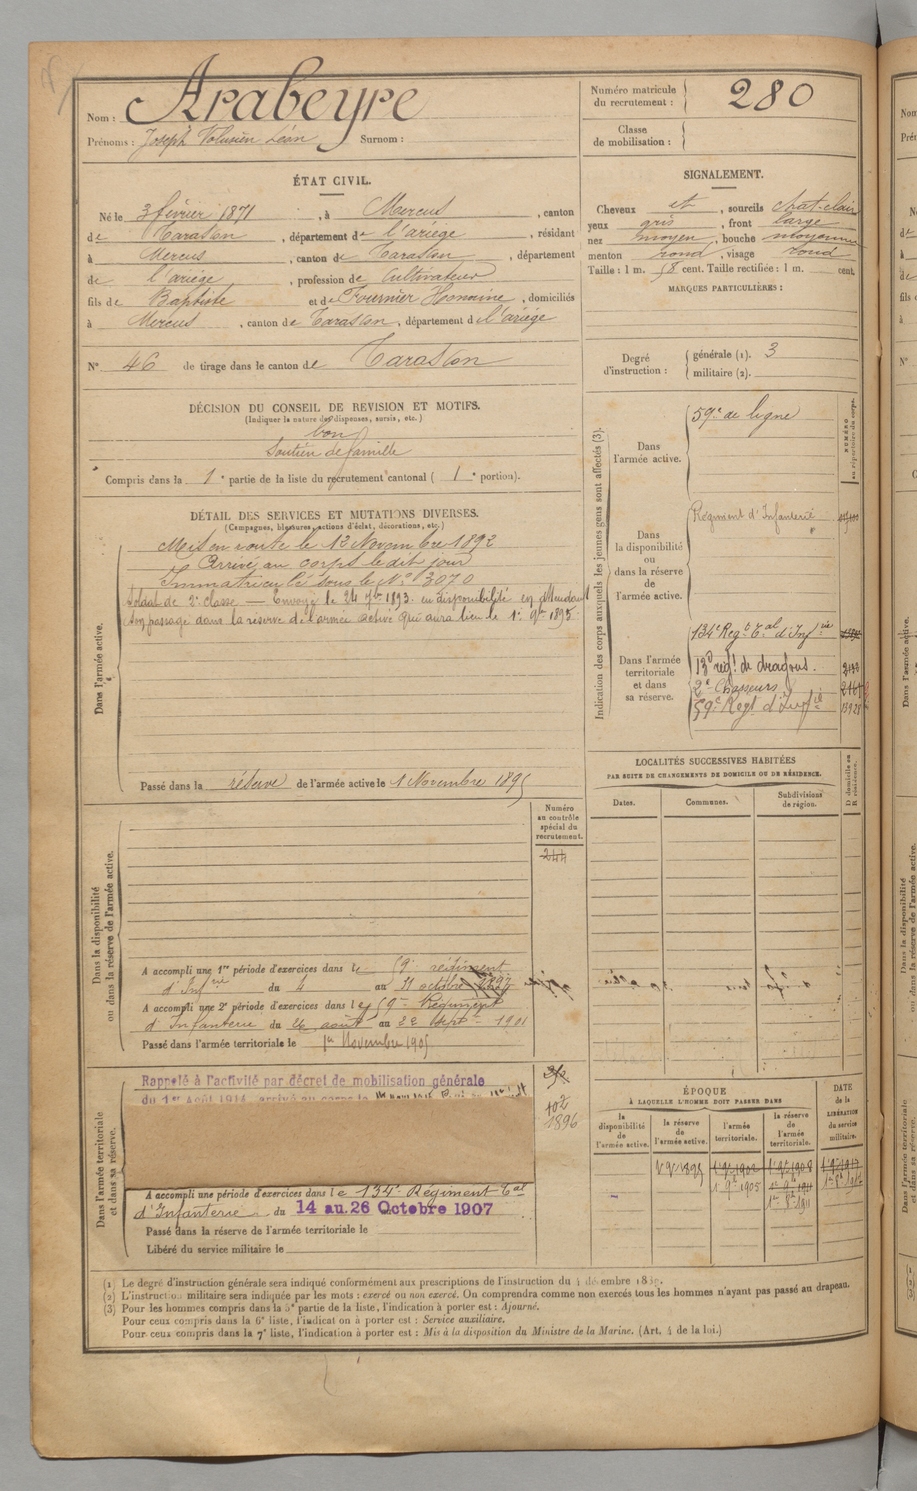 Nom : Arabeyre
Prénoms : Joseph Volusien Léon Surnom :
Numéro matricule du recrutement : 280
Classe de mobilisation :
ÉTAT CIVIL.
Né le 3 février 1871, à Mercus, canton
de Tarascon, département de l'ariège, résidant
à Mercus, canton de Tarascon, département
de l'ariège, profession de Cultivateur
fils de Baptiste et de Fournier Honorine, domiciliés
à Mercus, canton de Tarascon, département de l'ariège
N° 46 de tirage dans le canton de Tarascon
SIGNALEMENT.
Cheveux et, sourcils chat. clair
yeux gris, front large
nez moyen, bouche moyenne
menton rond, visage rond
Taille : 1 m. 58 cent. Taille rectifiée : 1 m. cent.
MARQUES PARTICULIÈRES :
Degré d'instruction : générale (1). 3
militaire (2).
DÉCISION DU CONSEIL DE REVISION ET MOTIFS.
(Indiquer la nature des dispenses, sursis, etc.)
bon
Soutien de famille
Compris dans la 1e partie de la liste du recrutement cantonal ( 1e portion).
DÉTAIL DES SERVICES ET MUTATIONS DIVERSES.
(Campagnes, blessures, actions d'éclat, décorations, etc.)
Dans l'armée active.
Mis en route le 12 Novembre 1892
Arrivé au corps le dit jour
Immatriculé sous le N° 3070
Soldat de 2e classe — Envoyé le 24 7bre 1893 en disponibilité en attendant
son passage dans la réserve de l'armée active qui aura lieu le 1er 9bre 1895
Passé dans la réserve de l'armée active le 1 Novembre 1895
Indication des corps auxquels les jeunes gens sont affectés (3).
NUMÉRO au répertoire du corps.
Dans l'armée active.
59e de ligne
Dans la disponibilité ou dans la réserve de l'armée active.
Régiment d'Infanterie
Dans l'armée territoriale et dans sa réserve.
134e Regt Tal d'Infie
13e régt de dragons.
2e Chasseurs
59e Regt d'Infie
LOCALITÉS SUCCESSIVES HABITÉES
PAR SUITE DE CHANGEMENTS DE DOMICILE OU DE RÉSIDENCE.
Dates. Communes. Subdivisions de région. D domicile ou R résidence.
Dans la disponibilité ou dans la réserve de l'armée active.
Numéro au contrôle spécial du recrutement.
244
A accompli une 1re période d'exercices dans le 59e régiment
d'Infrie du 4 au 31 octobre 1897
A accompli une 2e période d'exercices dans le 59e Régiment
d'Infanterie du 26 août au 22 Sept 1901
Passé dans l'armée territoriale le 1er Novembre 1905
Dans l'armée territoriale et dans sa réserve.
Rappelé à l'activité par décret de mobilisation générale
du 1er Août 1914, arrivé au corps le
402
1896
A accompli une période d'exercices dans le 134e Régiment Tal
d'Infanterie du 14 au 26 Octobre 1907
Passé dans la réserve de l'armée territoriale le
Libéré du service militaire le
ÉPOQUE
À LAQUELLE L'HOMME DOIT PASSER DANS
la disponibilité de l'armée active. la réserve de l'armée active. l'armée territoriale. la réserve de l'armée territoriale.
DATE de la LIBÉRATION du service militaire.
1er 9bre 1895 1er 9bre 1902 1er 9bre 1908 1er 9bre 1917
1er 9bre 1905 1er 9bre 1911
(1) Le degré d'instruction générale sera indiqué conformément aux prescriptions de l'instruction du 4 décembre 1889.
(2) L'instruction militaire sera indiquée par les mots : exercé ou non exercé. On comprendra comme non exercés tous les hommes n'ayant pas passé au drapeau.
(3) Pour les hommes compris dans la 5e partie de la liste, l'indication à porter est : Ajourné.
Pour ceux compris dans la 6e liste, l'indication à porter est : Service auxiliaire.
Pour ceux compris dans la 7e liste, l'indication à porter est : Mis à la disposition du Ministre de la Marine. (Art. 4 de la loi.)